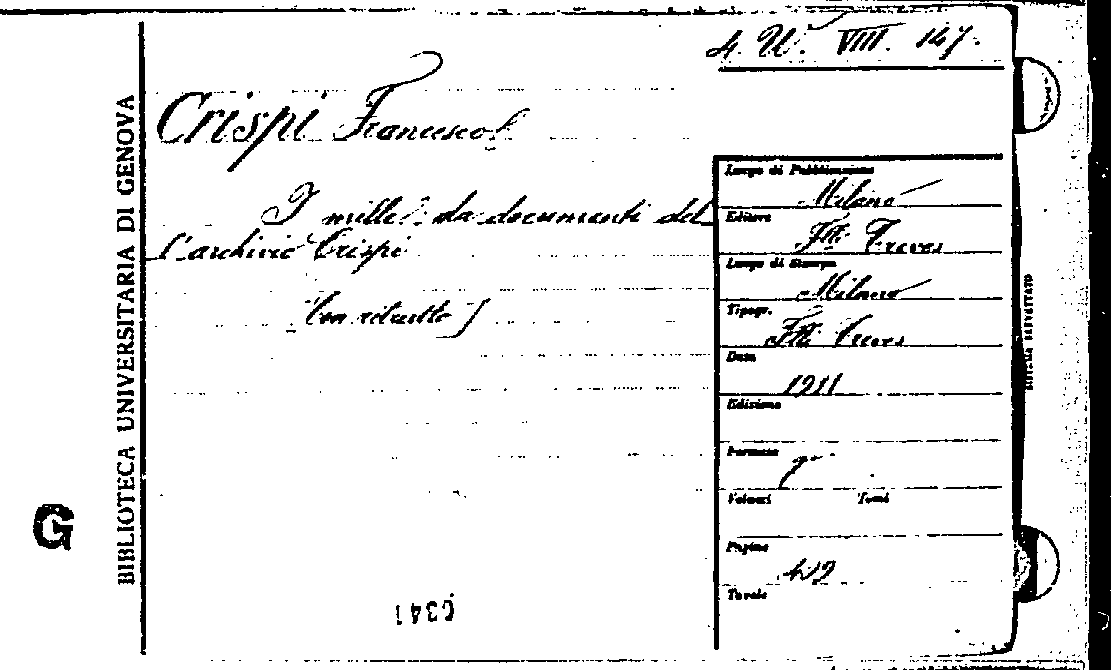 4. U. VIII. 147.
Crispi Francesco
I mille: da documenti del
l'archivio Crispi
Con ritratto
Luogo di Pubblicazione
Milano
Editore
Flli Treves
Luogo di Stampa
Milano
Tipogr.
Flli Treves
Data
1911
Edizione
Formato
Volumi Tomi
Pagine
Tavole
BIBLIOTECA UNIVERSITARIA DI GENOVA
G